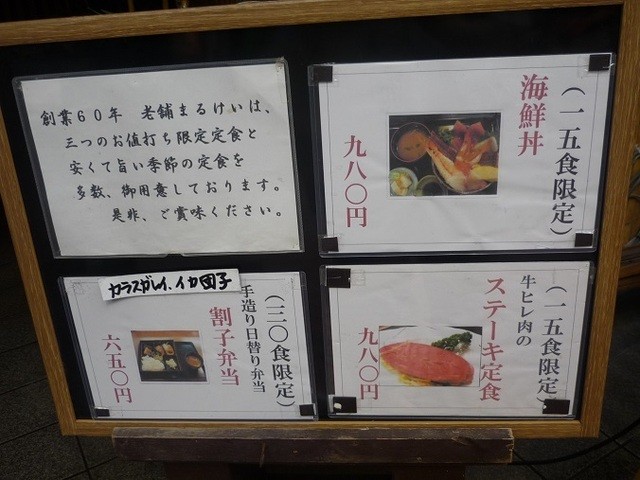 創業６０年　老舗まるけいは、
三つのお値打ち限定定食と
安くて旨い季節の定食を
多数、御用意しております。
是非、ご賞味ください。
（一五食限定）
海鮮丼
九八〇円
カラスガレイ、イカ団子
（三〇食限定）
手造り日替り弁当
割子弁当
六五〇円
（一五食限定）
牛ヒレ肉の
ステーキ定食
九八〇円